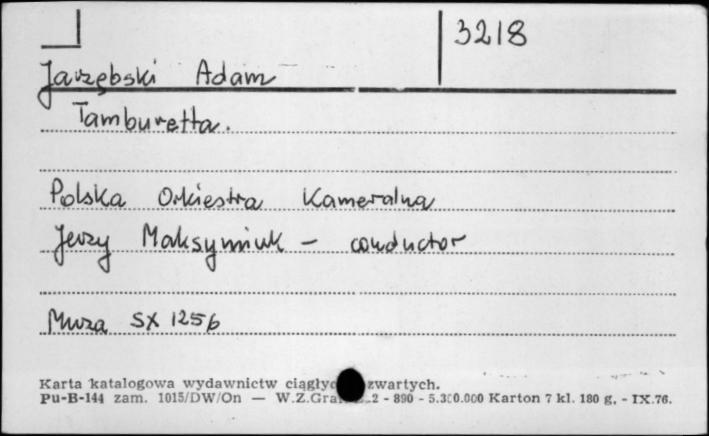 3218
Jarzębski Adam
Tamburetta.
Polska Orkiestra Kameralna
Jerzy Maksymiuk - conductor
Muza SX 1256
Karta katalogowa wydawnictw zwartych.
Pu-B-144 zam. 1015/DW/On — 2 - 890 - 5.300.000 Karton 7 kl. 180 g. - IX.76.